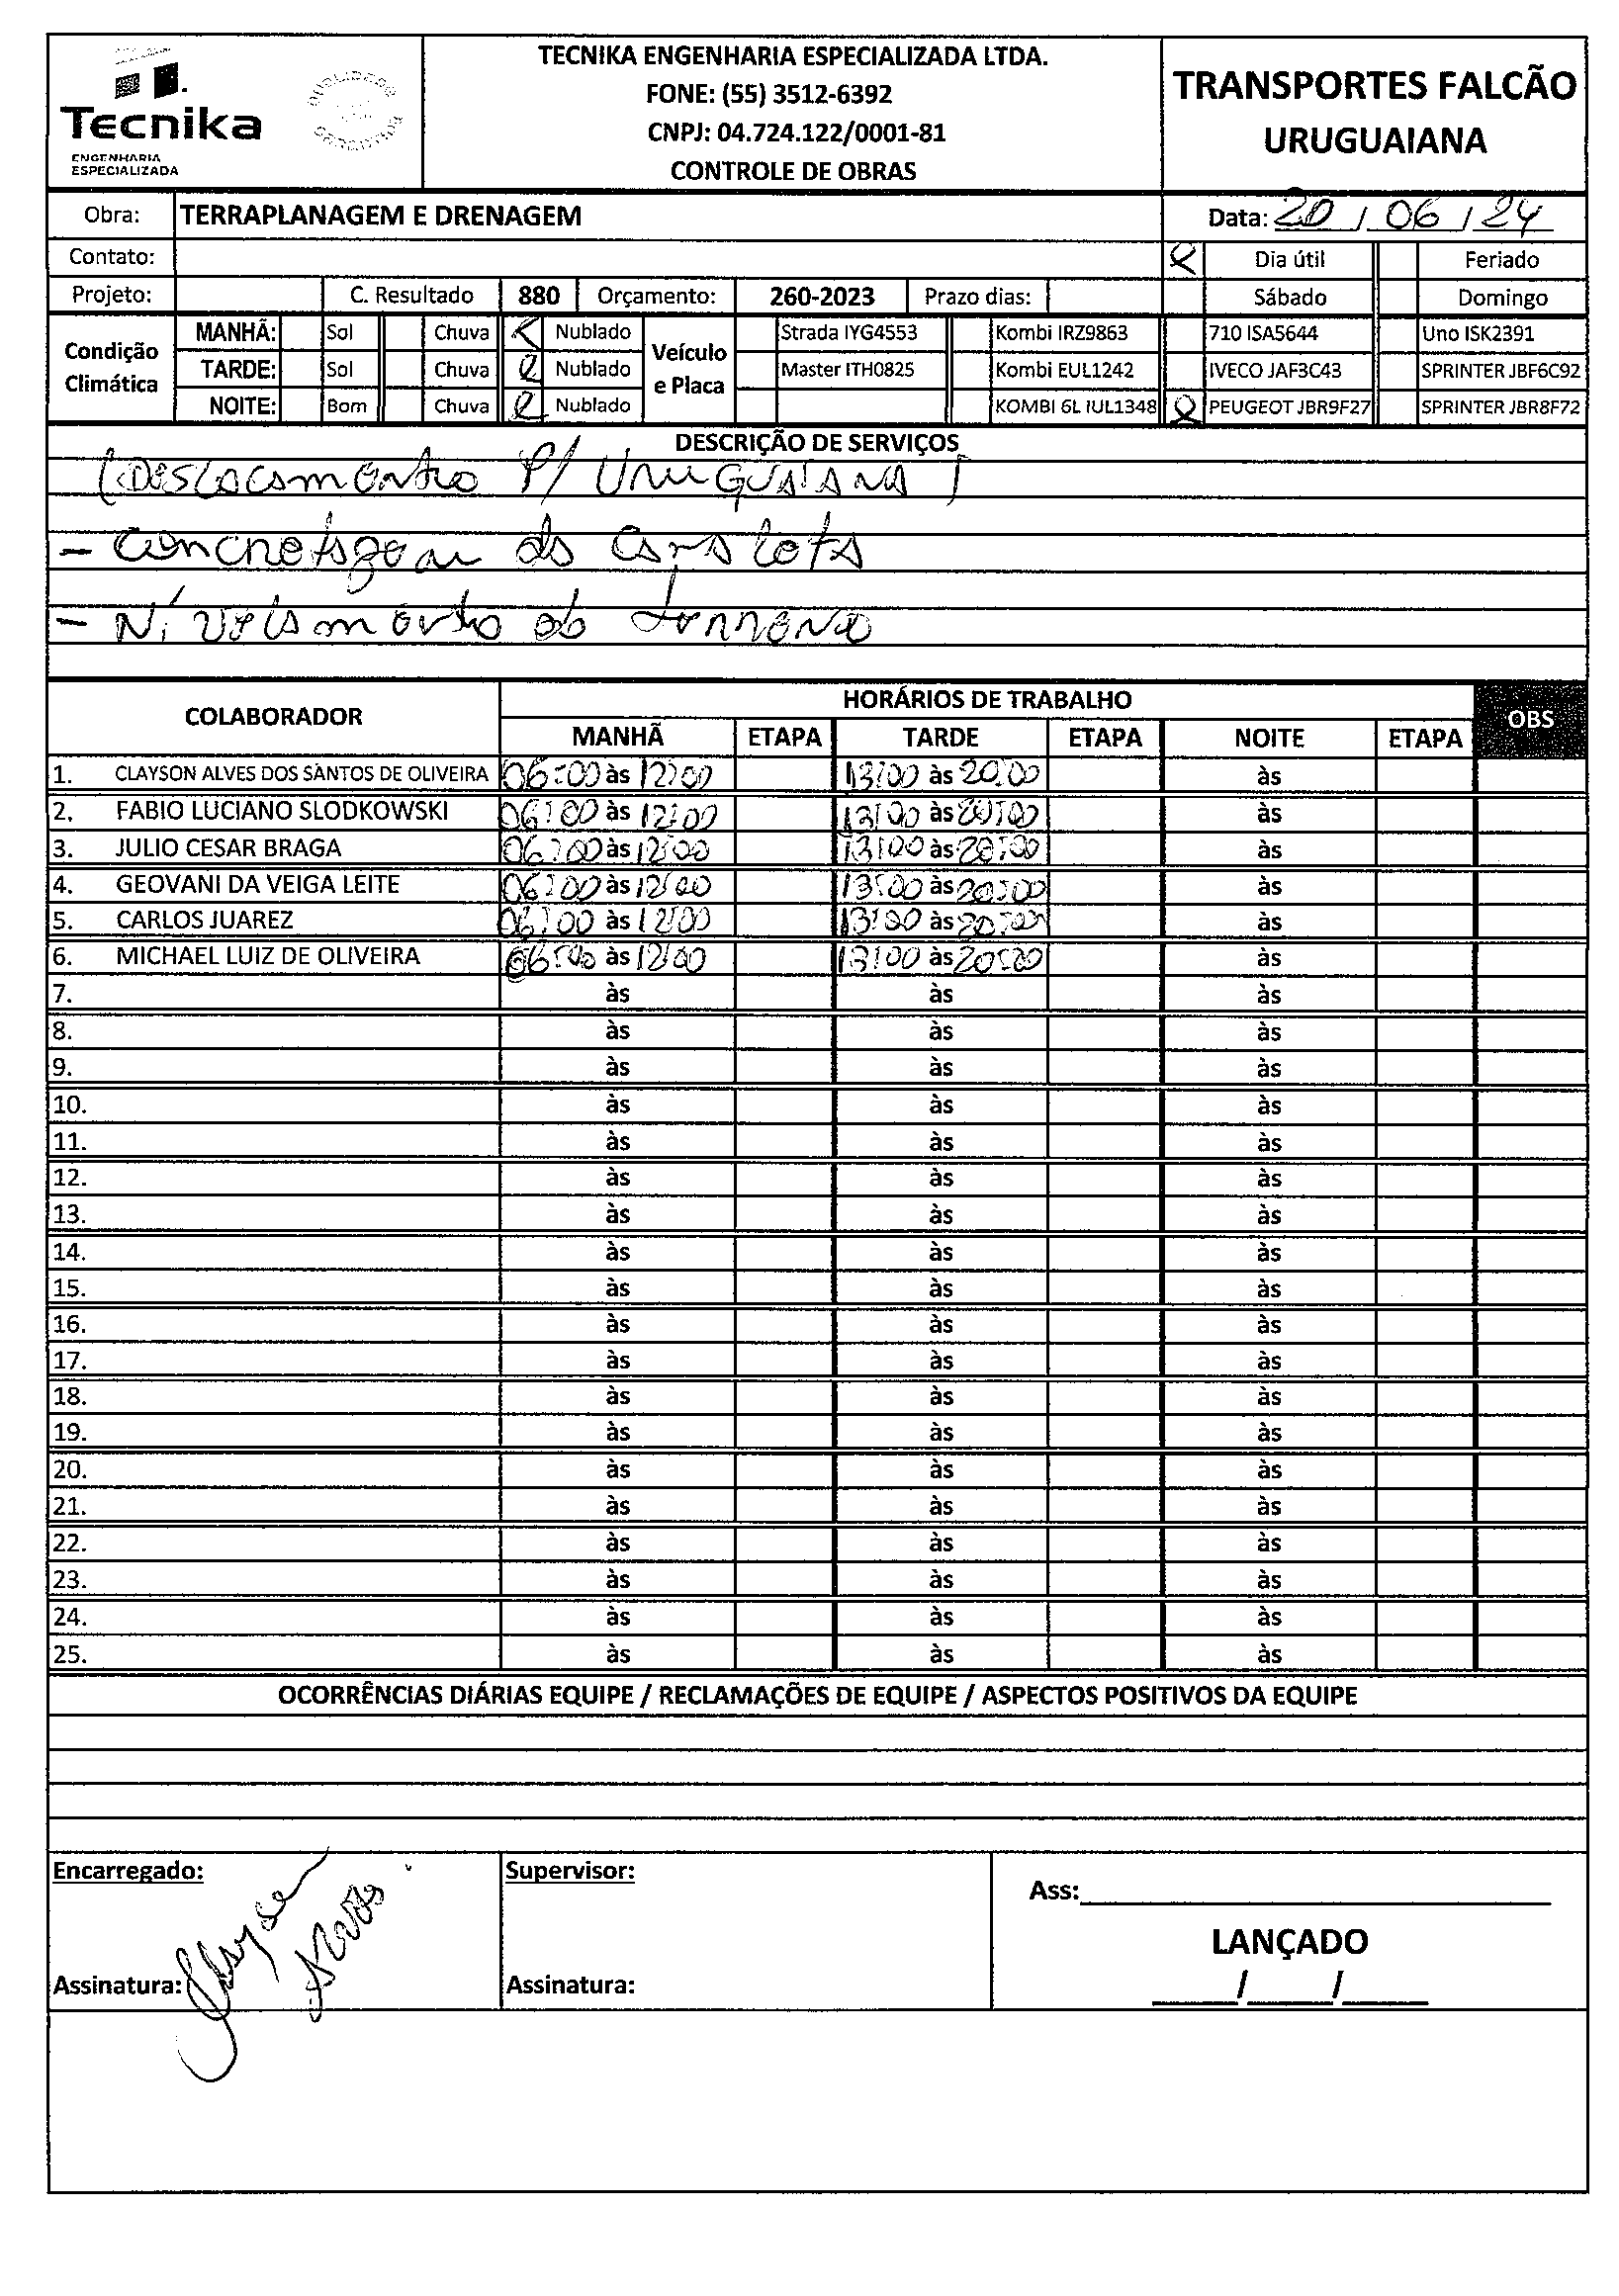 Tecnika
ENGENHARIA
ESPECIALIZADA
TECNIKA ENGENHARIA ESPECIALIZADA LTDA.
FONE: (55) 3512-6392
CNPJ: 04.724.122/0001-81
CONTROLE DE OBRAS
TRANSPORTES FALCÃO
URUGUAIANA
Obra: TERRAPLANAGEM E DRENAGEM Data: 20 / 06 / 24
Contato: Dia útil Feriado
Projeto: C. Resultado 880 Orçamento: 260-2023 Prazo dias: Sábado Domingo
Condição Climática MANHÃ: Sol Chuva Nublado Veículo e Placa Strada IYG4553 Kombi IRZ9863 710 ISA5644 Uno ISK2391
TARDE: Sol Chuva Nublado Master ITH0825 Kombi EUL1242 IVECO JAF3C43 SPRINTER JBF6C92
NOITE: Bom Chuva Nublado KOMBI 6L IUL1348 PEUGEOT JBR9F27 SPRINTER JBR8F72
DESCRIÇÃO DE SERVIÇOS
(Deslocamento P/ Uruguaiana)
- Concretagem da canaleta
- Nivelamento do terreno
COLABORADOR HORÁRIOS DE TRABALHO OBS
MANHÃ ETAPA TARDE ETAPA NOITE ETAPA
1. CLAYSON ALVES DOS SANTOS DE OLIVEIRA 06:00 às 12:00 13:00 às 20:00 às
2. FABIO LUCIANO SLODKOWSKI 06:00 às 12:00 13:00 às 20:00 às
3. JULIO CESAR BRAGA 06:00 às 12:00 13:00 às 20:00 às
4. GEOVANI DA VEIGA LEITE 06:00 às 12:00 13:00 às 20:00 às
5. CARLOS JUAREZ 06:00 às 12:00 13:00 às 20:00 às
6. MICHAEL LUIZ DE OLIVEIRA 06:00 às 12:00 13:00 às 20:00 às
7. às às às
8. às às às
9. às às às
10. às às às
11. às às às
12. às às às
13. às às às
14. às às às
15. às às às
16. às às às
17. às às às
18. às às às
19. às às às
20. às às às
21. às às às
22. às às às
23. às às às
24. às às às
25. às às às
OCORRÊNCIAS DIÁRIAS EQUIPE / RECLAMAÇÕES DE EQUIPE / ASPECTOS POSITIVOS DA EQUIPE
Encarregado: Supervisor: Ass:
LANÇADO
Assinatura: Clayson Alves Assinatura: / /